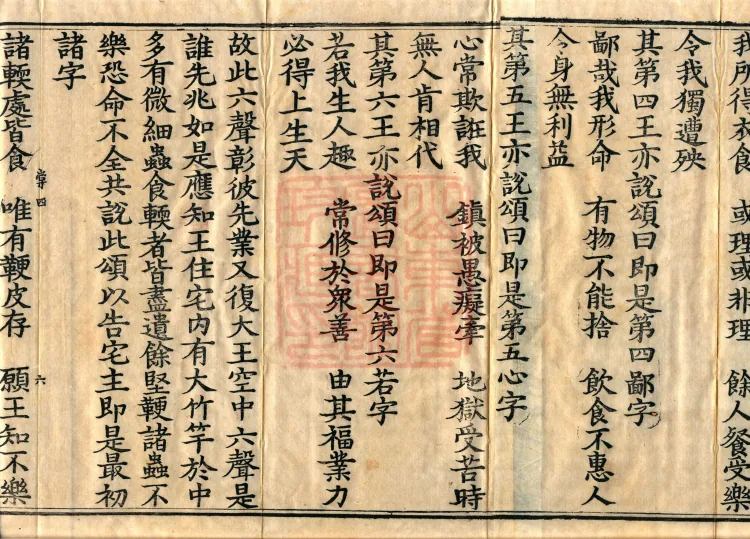 我所得衣食　或理或非理　餘人餐受樂
令我獨遭殃
其第四王亦說頌曰即是第四鄙字
鄙哉我形命　有物不能捨　飲食不惠人
令身無利益
其第五王亦說頌曰即是第五心字
心常欺誑我　鎮被愚癡牽　地獄受苦時
無人肯相代
其第六王亦說頌曰即是第六若字
若我生人趣　常修於衆善　由其福業力
必得上生天
故此六聲彰彼先業又復大王空中六聲是
誰先兆如是應知王住宅內有大竹竿於中
多有微細蟲食輭者皆盡遺餘堅鞕諸蟲不
樂恐命不全共說此頌以告宅主即是最初
諸字
尊四　六
諸輭處皆食　唯有鞕皮存　願王知不樂